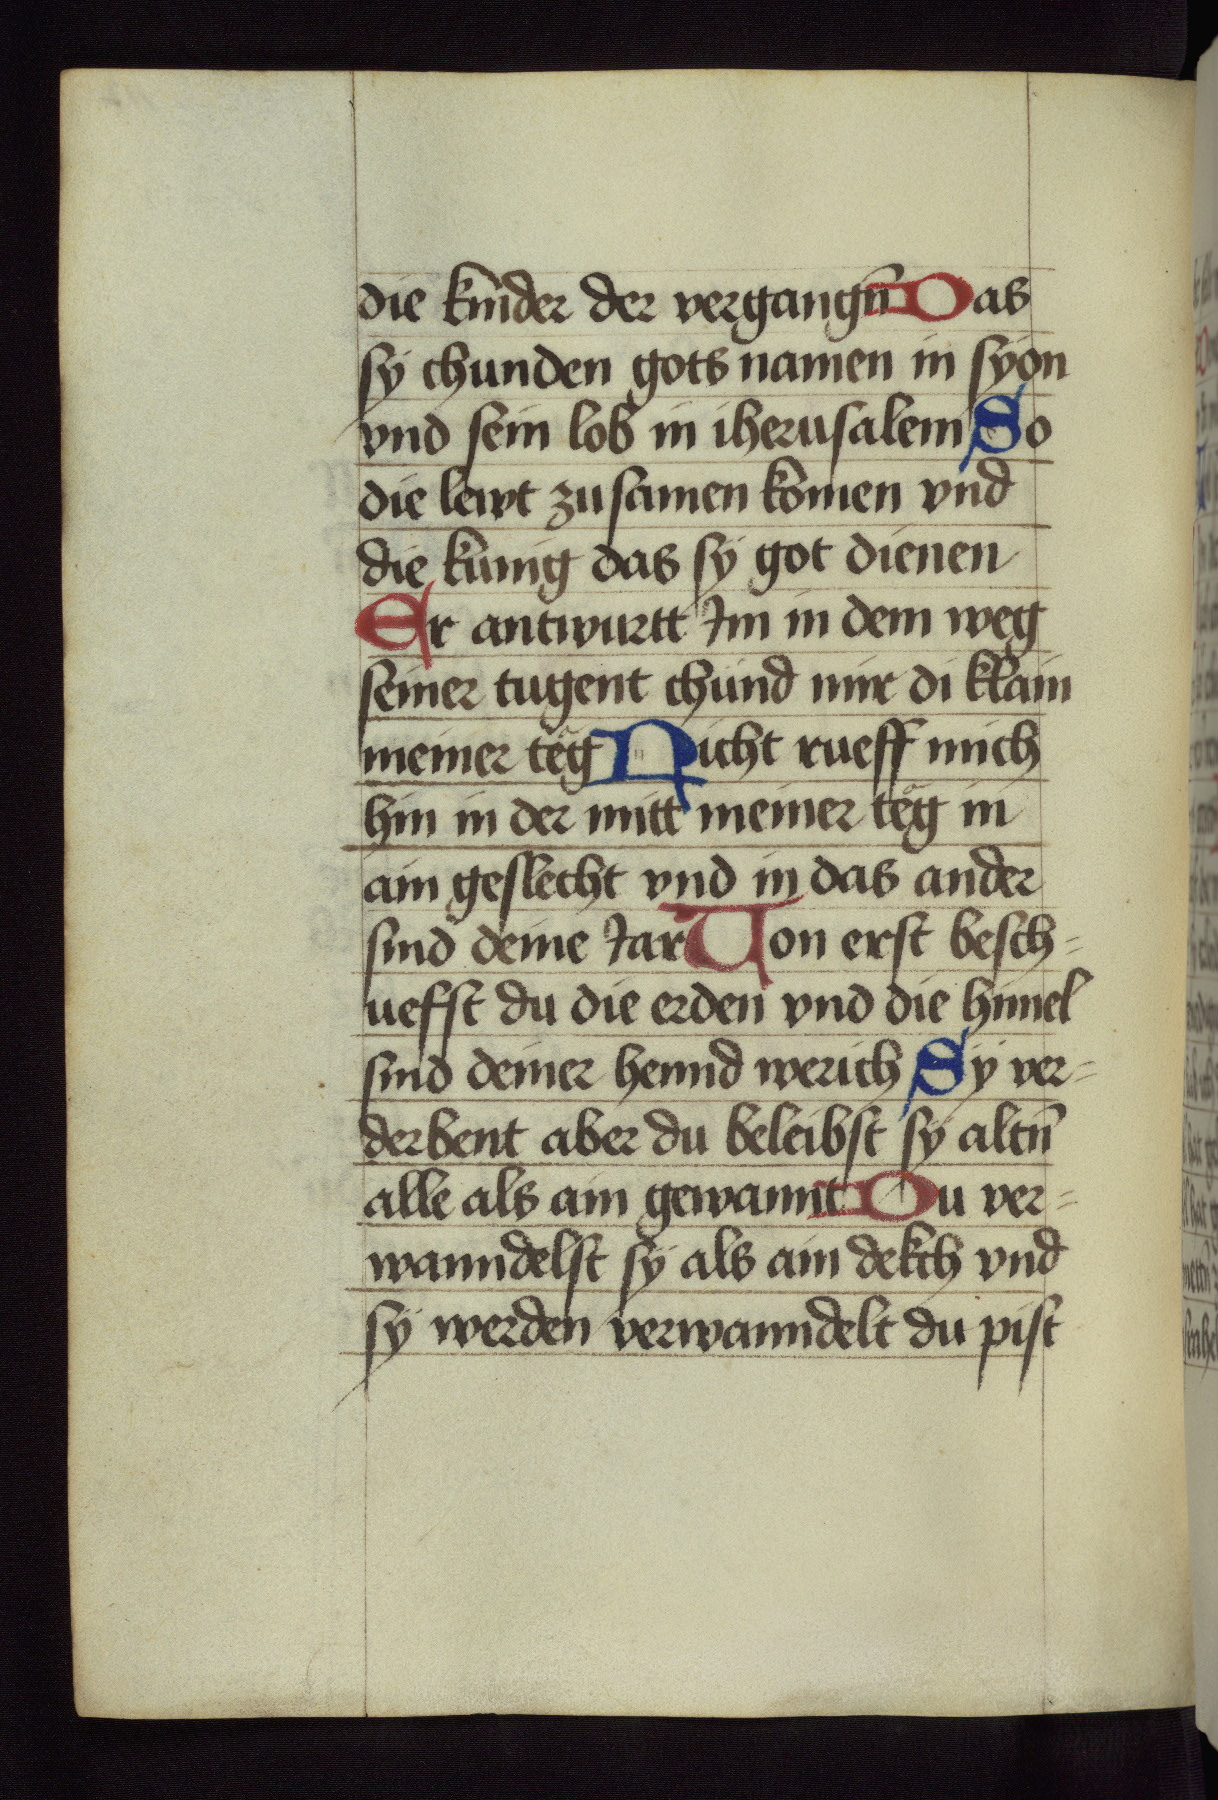 die kinder der vergangn̄ Das
sÿ chunden gots namen in sÿon
vnd sein lob in iherusalem So
die lewt zusamen komen vnd
die kunig das sÿ got dienen
Er antwurtt Im in dem weg
seiner tugent chund mir di klain
meiner teg Nicht rueff mich
hin in der mitt meiner teg in
ain geslecht vnd in das ander
sind deine Jar Von erst besch=
uefst du die erden vnd die himel
sind deiner hennd werich Sÿ ver=
derbent aber du beleibst sÿ altn̄
alle als ain gewannt Du ver=
wanndelst sÿ als ain dekch vnd
sÿ werden verwanndelt du pist